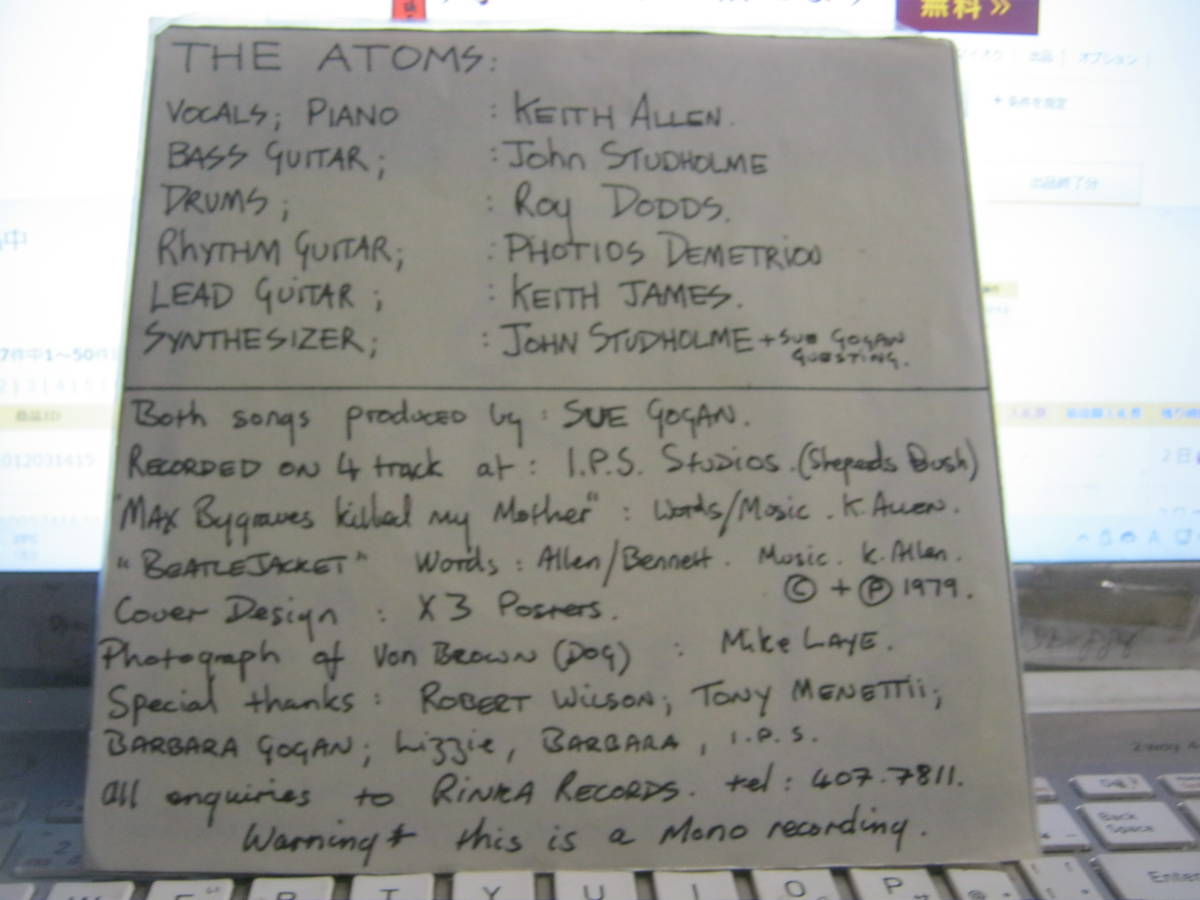 無料 »
オプション
+ 条件を指定
出品終了分
THE ATOMS:
VOCALS; PIANO : KEITH ALLEN.
BASS GUITAR; : John STUDHOLME
DRUMS; : Roy DODDS.
RHYTHM GUITAR; : PHOTIOS DEMETRIOU
LEAD GUITAR; : KEITH JAMES.
SYNTHESIZER; : JOHN STUDHOLME + SUE GOGAN
GUESTING.
Both songs produced by : SUE GOGAN.
RECORDED ON 4 track at : I.P.S. STUDIOS. (Shepeds Bush)
"MAX Bygraves killed my Mother" : Words/Music . K. ALLEN.
"BEATLEJACKET" Words : Allen/Bennett. Music. K. Allen.
© + ℗ 1979.
Cover Design : X3 Posters.
Photograph of Von BROWN (DOG) : Mike LAYE.
Special thanks : ROBERT WILSON; TONY MENETTii;
BARBARA GOGAN; Lizzie, BARBARA, I.P.S.
all enquiries to RINKA RECORDS. tel: 407.7811.
Warning* this is a Mono recording.
Back
Space
Enter
R T Y U I O P @